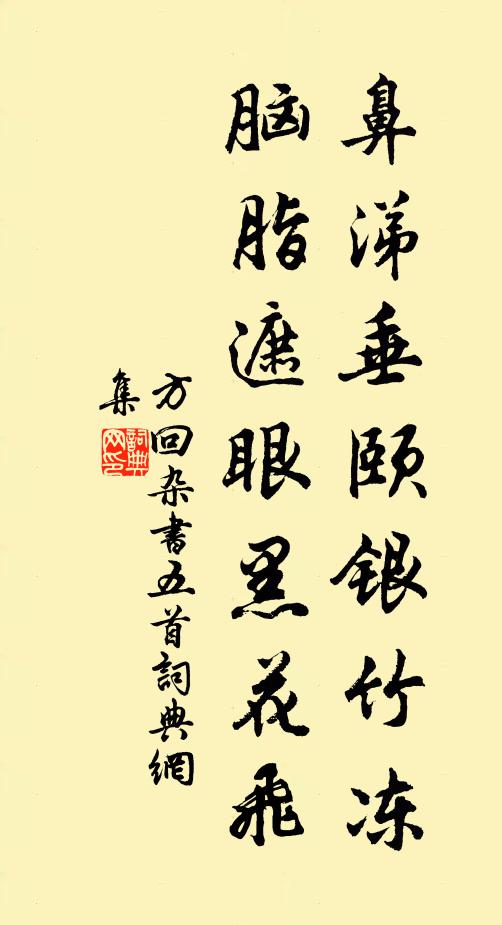 鼻涕垂颐银竹冻
脑脂遮眼黑花飞
方回杂書五首詞典網
集
詞典网印